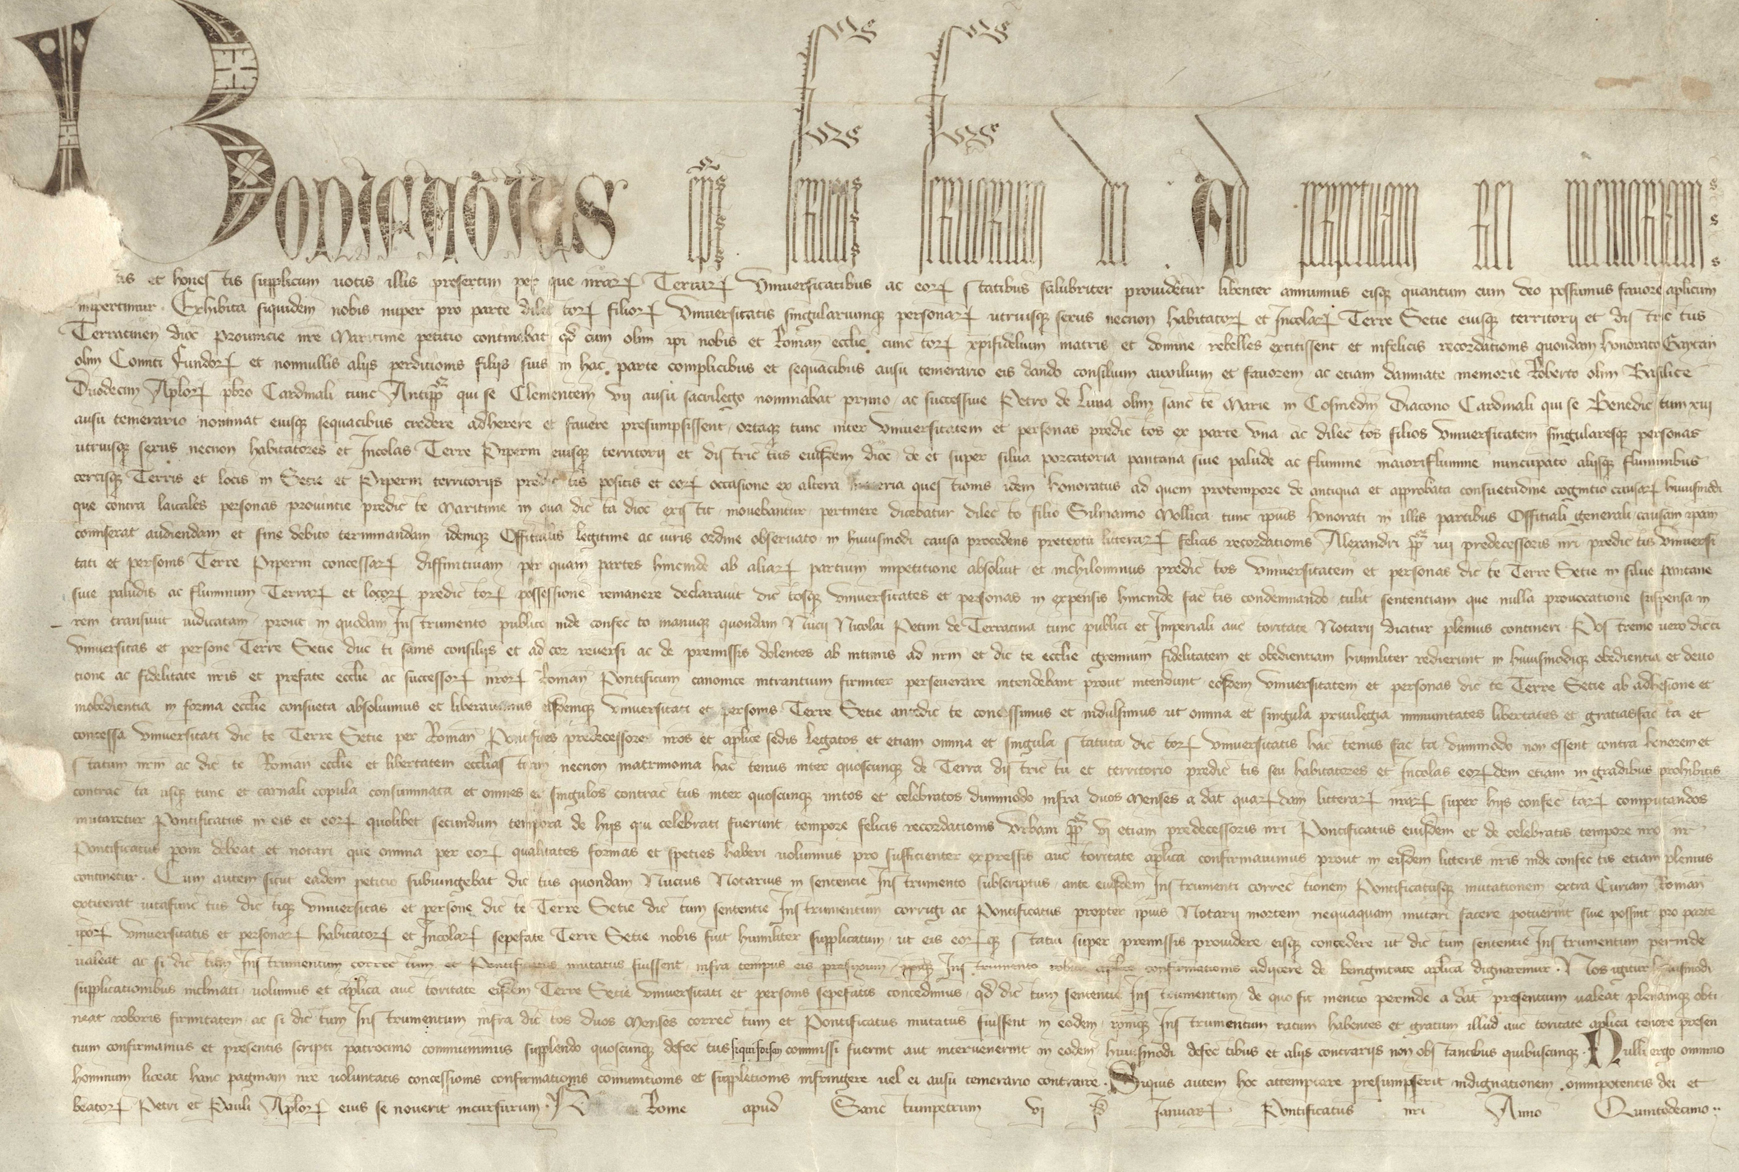 Bonifacius ep̄s servus servorum dei Ad perpetuam rei memoriam
tis et honestis supplicum votis illis presertim per que nr̄arꝝ Terrarꝝ Universitatibus ac eorꝝ statibus salubriter providetur libenter annuimus eisqꝫ quantum cum deo possumus favorē aplicum
impertimur . Exhibita siquidem nobis nuper pro parte dilectorꝝ filiorꝝ Universitatis singulariumqꝫ personarꝝ utriusqꝫ sexus necnon habitatorꝝ et Incolarꝝ Terre Setie eiusqꝫ territorij et districtus
Terracinen̄ dioc̄ Provincie nr̄e Maritime petitio continebat qd̄ cum olim ip̄i nobis et Roman̄ eccl̄ie cunctorꝝ xp̄ifidelium matris et domine rebelles extitissent et infelicis recordationis quondam Honorato Gaytan̄
olim Comiti Fundorꝝ et nonnullis alijs perditionis filijs suis in hac parte complicibus et sequacibus ausu temerario eis dando consilium auxilium et favorem ac etiam damnate memorie Roberto olim Basilice
Duodecim Apl̄orꝝ pb̄ro Cardinali tunc Antipp̄ qui se Clementem vij ausu sacrilego nominabat primo ac successive Petro de Luna olim sancte Marie in Cosmedin̄ Diacono Cardinali qui se Benedictum xiij
ausu temerario nominat eiusqꝫ sequacibus credere adherere et favere presumpsissent ortaqꝫ tunc inter Universitatem et personas predictos ex parte una ac dilectos filios Universitatem singularesqꝫ personas
utriusqꝫ sexus necnon habitatores et Incolas Terre Piperni eiusqꝫ territorij et districtus eiusdem dioc̄ de et super silva porcatoria pantana sive palude ac flumine maioriflumine nuncupato alijsqꝫ fluminibus
certisqꝫ Terris et locis in Setie et Piperni territorijs predictis positis et eorꝝ occasione ex altera materia questionis idem Honoratus ad quem protempore de antiqua et approbata consuetudine cognitio causarꝝ huiusmodi
que contra laicales personas provincie predicte Maritime in qua dicta dioc̄ existit movebantur pertinere dicebatur dilecto filio Gilmanno Mollica tunc ip̄ius Honorati in illis partibus Offitiali generali causam ip̄am
comiserat audiendam et fine debito terminandam idemqꝫ Offitialis legitime ac iuris ordine observato in huiusmodi causa procedens pretextu litterarꝝ felicis recordationis Alexandri pp̄ iiij predecessoris nr̄i predictis Universi
tati et personis Terre Piperni concessarꝝ diffinitivam per quam partes hincinde ab aliarꝝ partium impetitione absolvit et nichilominus predictos Universitatem et personas dicte Terre Setie in silve pantane
sive paludis ac fluminum Terrarꝝ et locorꝝ predictorꝝ possessione remanere declaravit dictosqꝫ Universitates et personas in expensis hincinde factis condemnando tulit sententiam que nulla provocatione suspensa in
rem transivit iudicatam prout in quodam Instrumento publico inde confecto manuqꝫ quondam Nucij Nicolai Petini de Terracina tunc publici et Imperiali auctoritate Notarij dicitur plenius contineri . Postremo vero dicti
Universitas et persone Terre Setie ducti sanis consilijs et ad cor reversi ac de premissis dolentes ab intimis ad nr̄m et dicte eccl̄ie gremium fidelitatem et obedientiam humiliter redierunt in huiusmodiqꝫ obedientia et devo
tione ac fidelitate nr̄is et prefate eccl̄ie ac successorꝝ nr̄orꝝ Roman̄ Pontificum canonice intrantium firmiter perseverare intendebant prout intendunt eosdem Universitatem et personas dicte Terre Setie ab adhesione et
inobedientia in forma eccl̄ie consueta absolvimus et liberavimus eisdemqꝫ Universitati et personis Terre Setie antedicte concessimus et indulsimus ut omnia et singula privilegia immunitates libertates et gratias facta et
concessa Universitati dicte Terre Setie per Roman̄ Pontifices predecessores nr̄os et aplice sedis legatos et etiam omnia et singula statuta dictorꝝ Universitatis hactenus facta dummodo non essent contra honorem et
statum nr̄m ac dicte Roman̄ eccl̄ie et libertatem eccl̄iasticam necnon matrimonia hactenus inter quoscunqꝫ de Terra districtu et territorio predictis seu habitatores et Incolas eorꝝdem etiam in gradibus prohibitis
contracta usqꝫ tunc et carnali copula consummata et omnes et singulos contractus inter quoscunqꝫ initos et celebratos dummodo infra duos Menses a dat̄ quarꝝdam litterarꝝ nr̄arꝝ super hijs confectarꝝ computandos
mutaretur Pontificatus in eis et eorꝝ quolibet secundum tempora de hijs qui celebrati fuerunt tempore felicis recordationis Urbani pp̄ vj etiam predecessoris nr̄i Pontificatus eiusdem et de celebratis tempore nr̄o nr̄
Pontificatus poni debeat et notari que omnia per eorꝝ qualitates formas et species haberi volumus pro sufficienter expressis auctoritate aplica confirmavimus prout in eisdem litteris nr̄is inde confectis etiam plenius
continetur . Cum autem sicut eadem petitio subiungebat dictus quondam Nucius Notarius in sententie Instrumento subscriptus ante eiusdem Instrumenti correctionem Pontificatusqꝫ mutationem extra Curiam Roman̄
extiterat vitafunctus dictiqꝫ Universitas et persone dicte Terre Setie dictum sententie Instrumentum corrigi ac Pontificatus propter ip̄ius Notarij mortem nequaquam mutari facere potuerint sive possint pro parte
ip̄orꝝ Universitatis et personarꝝ habitatorꝝ et Incolarꝝ sepefate Terre Setie nobis fuit humiliter supplicatum ut eis eorꝝqꝫ statui super premissis providere eisqꝫ concedere ut dictum sententie Instrumentum perinde
valeat ac si dictum Instrumentum correctum et Pontificatus mutatus fuissent infra tempus eis prefixum ip̄iqꝫ Instrumento robur aplice confirmationis adijcere de benignitate aplica dignaremur . Nos igitur huiusmodi
supplicationibus inclinati volumus et aplica auctoritate eisdem Terre Setie Universitati et personis sepefatis concedimus qd̄ dictum sententie Instrumentum de quo fit mentio perinde a dat̄ presentium valeat plenamqꝫ obti
neat roboris firmitatem ac si dictum Instrumentum infra dictos duos Menses correctum et Pontificatus mutatus fuissent in eodem ip̄umqꝫ Instrumentum ratum habentes et gratum illud auctoritate aplica tenore presen
tium confirmamus et presentis scripti patrocinio communimus supplendo quoscunqꝫ defectus siqui forsan commissi fuerint aut intervenerint in eodem huiusmodi defectibus et alijs contrarijs non obstantibus quibuscunqꝫ . Nulli ergo omnino
hominum liceat hanc paginam nr̄e voluntatis concessionis confirmationis comunitionis et suppletionis infringere vel ei ausu temerario contraire . Siquis autem hoc attemptare presumpserit indignationem omnipotentis dei et
beatorꝝ Petri et Pauli Apl̄orꝝ eius se noverit incursurum . Dat̄ Rome apud Sanctumpetrum vj Id̄ Januarꝝ Pontificatus nr̄i Anno Quintodecimo